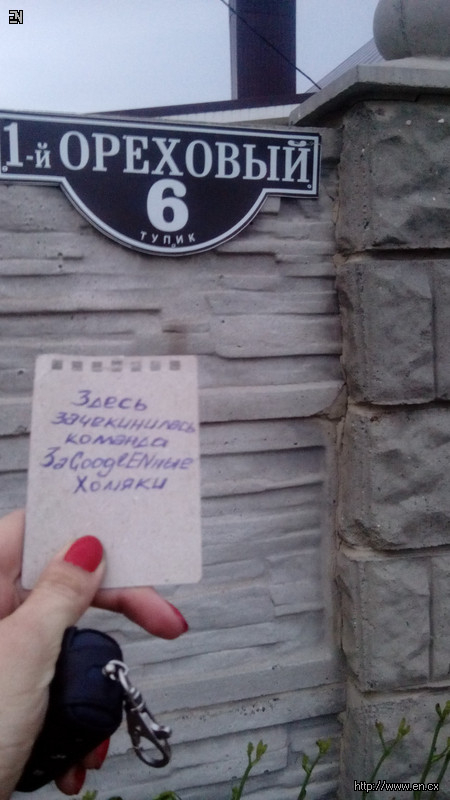 EN
1-й ОРЕХОВЫЙ
6
ТУПИК
Здесь
зачекинилась
команда
ЗаGooglENные
Хомяки
http://www.en.cx